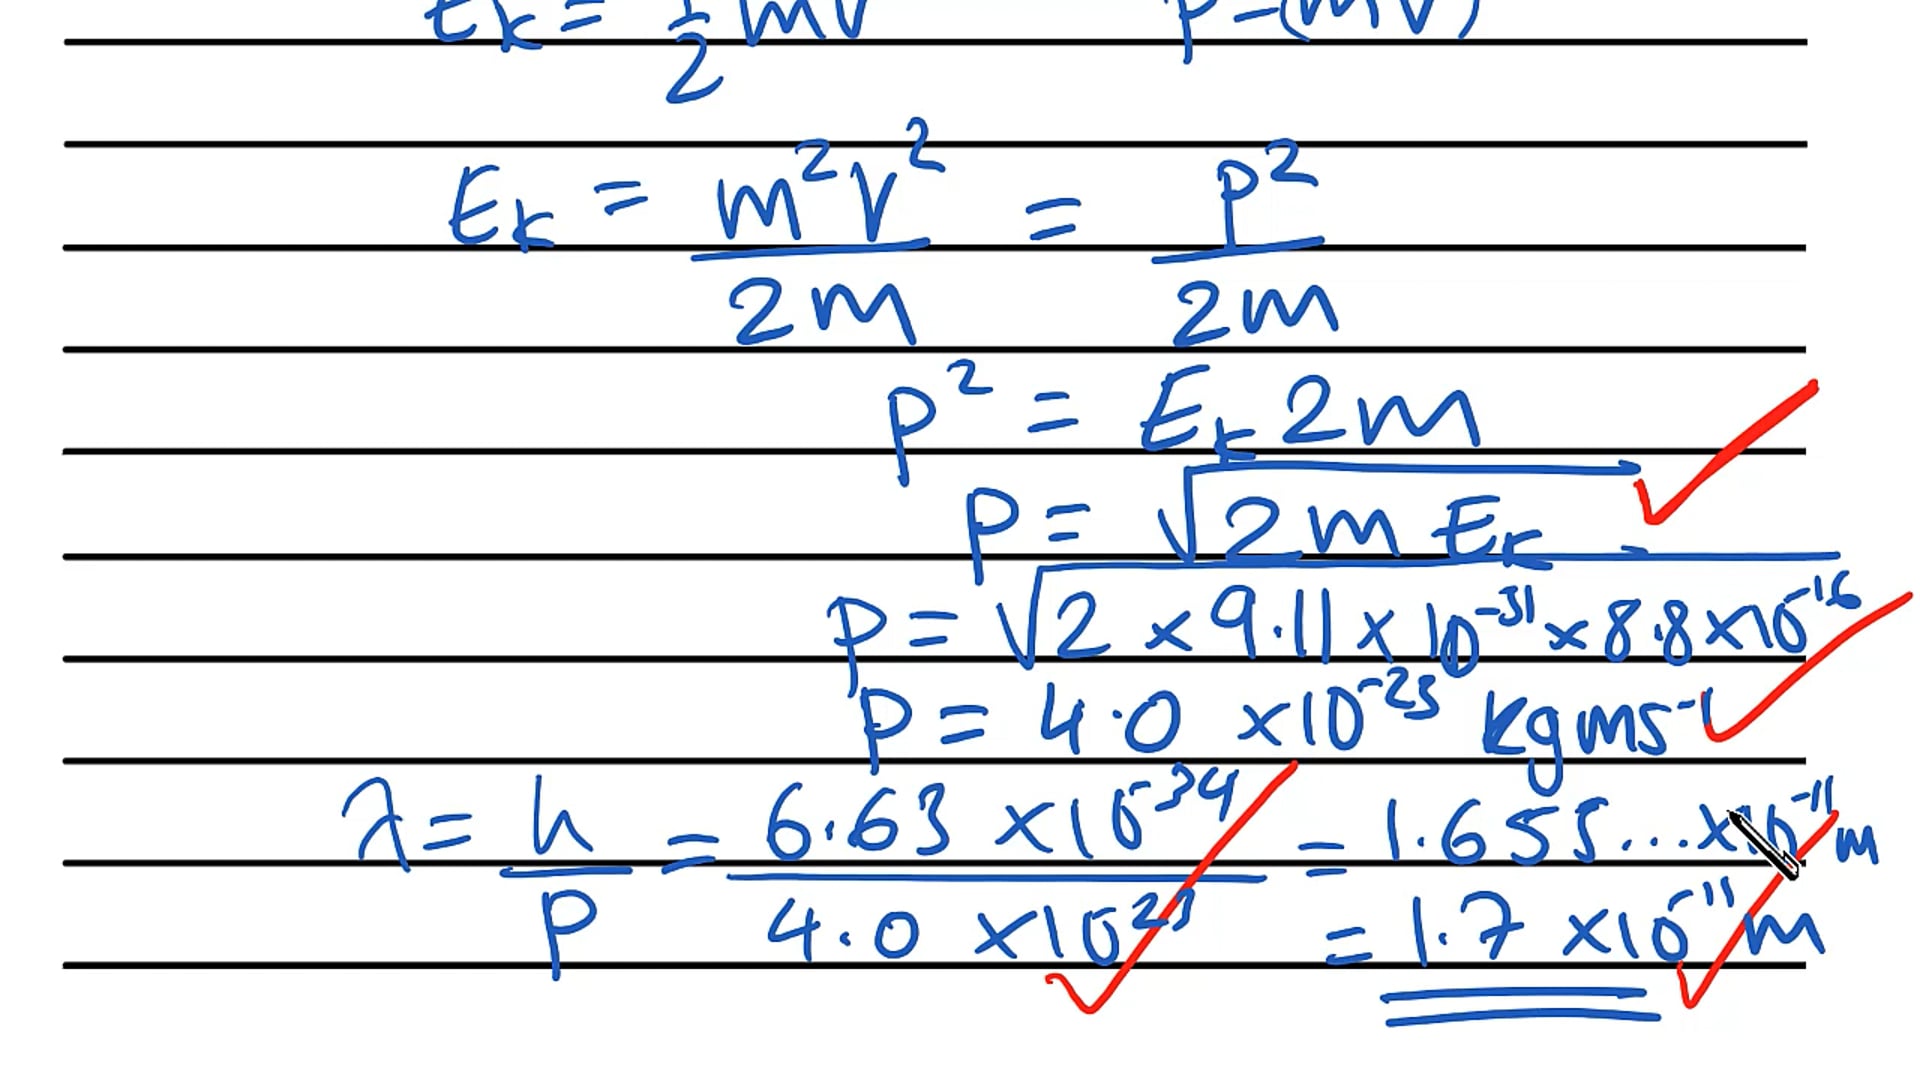 Ek = 1/2 mv p = (mv)
Ek = m²v²/2m = p²/2m
p² = Ek 2m
p = √2mEk
p = √2 × 9.11 × 10⁻³¹ × 8.8 × 10⁻¹⁶
p = 4.0 × 10⁻²³ kg ms⁻¹
λ = h/p = 6.63 × 10⁻³⁴/4.0 × 10⁻²³ = 1.655... × 10⁻¹¹ m
= 1.7 × 10⁻¹¹ m